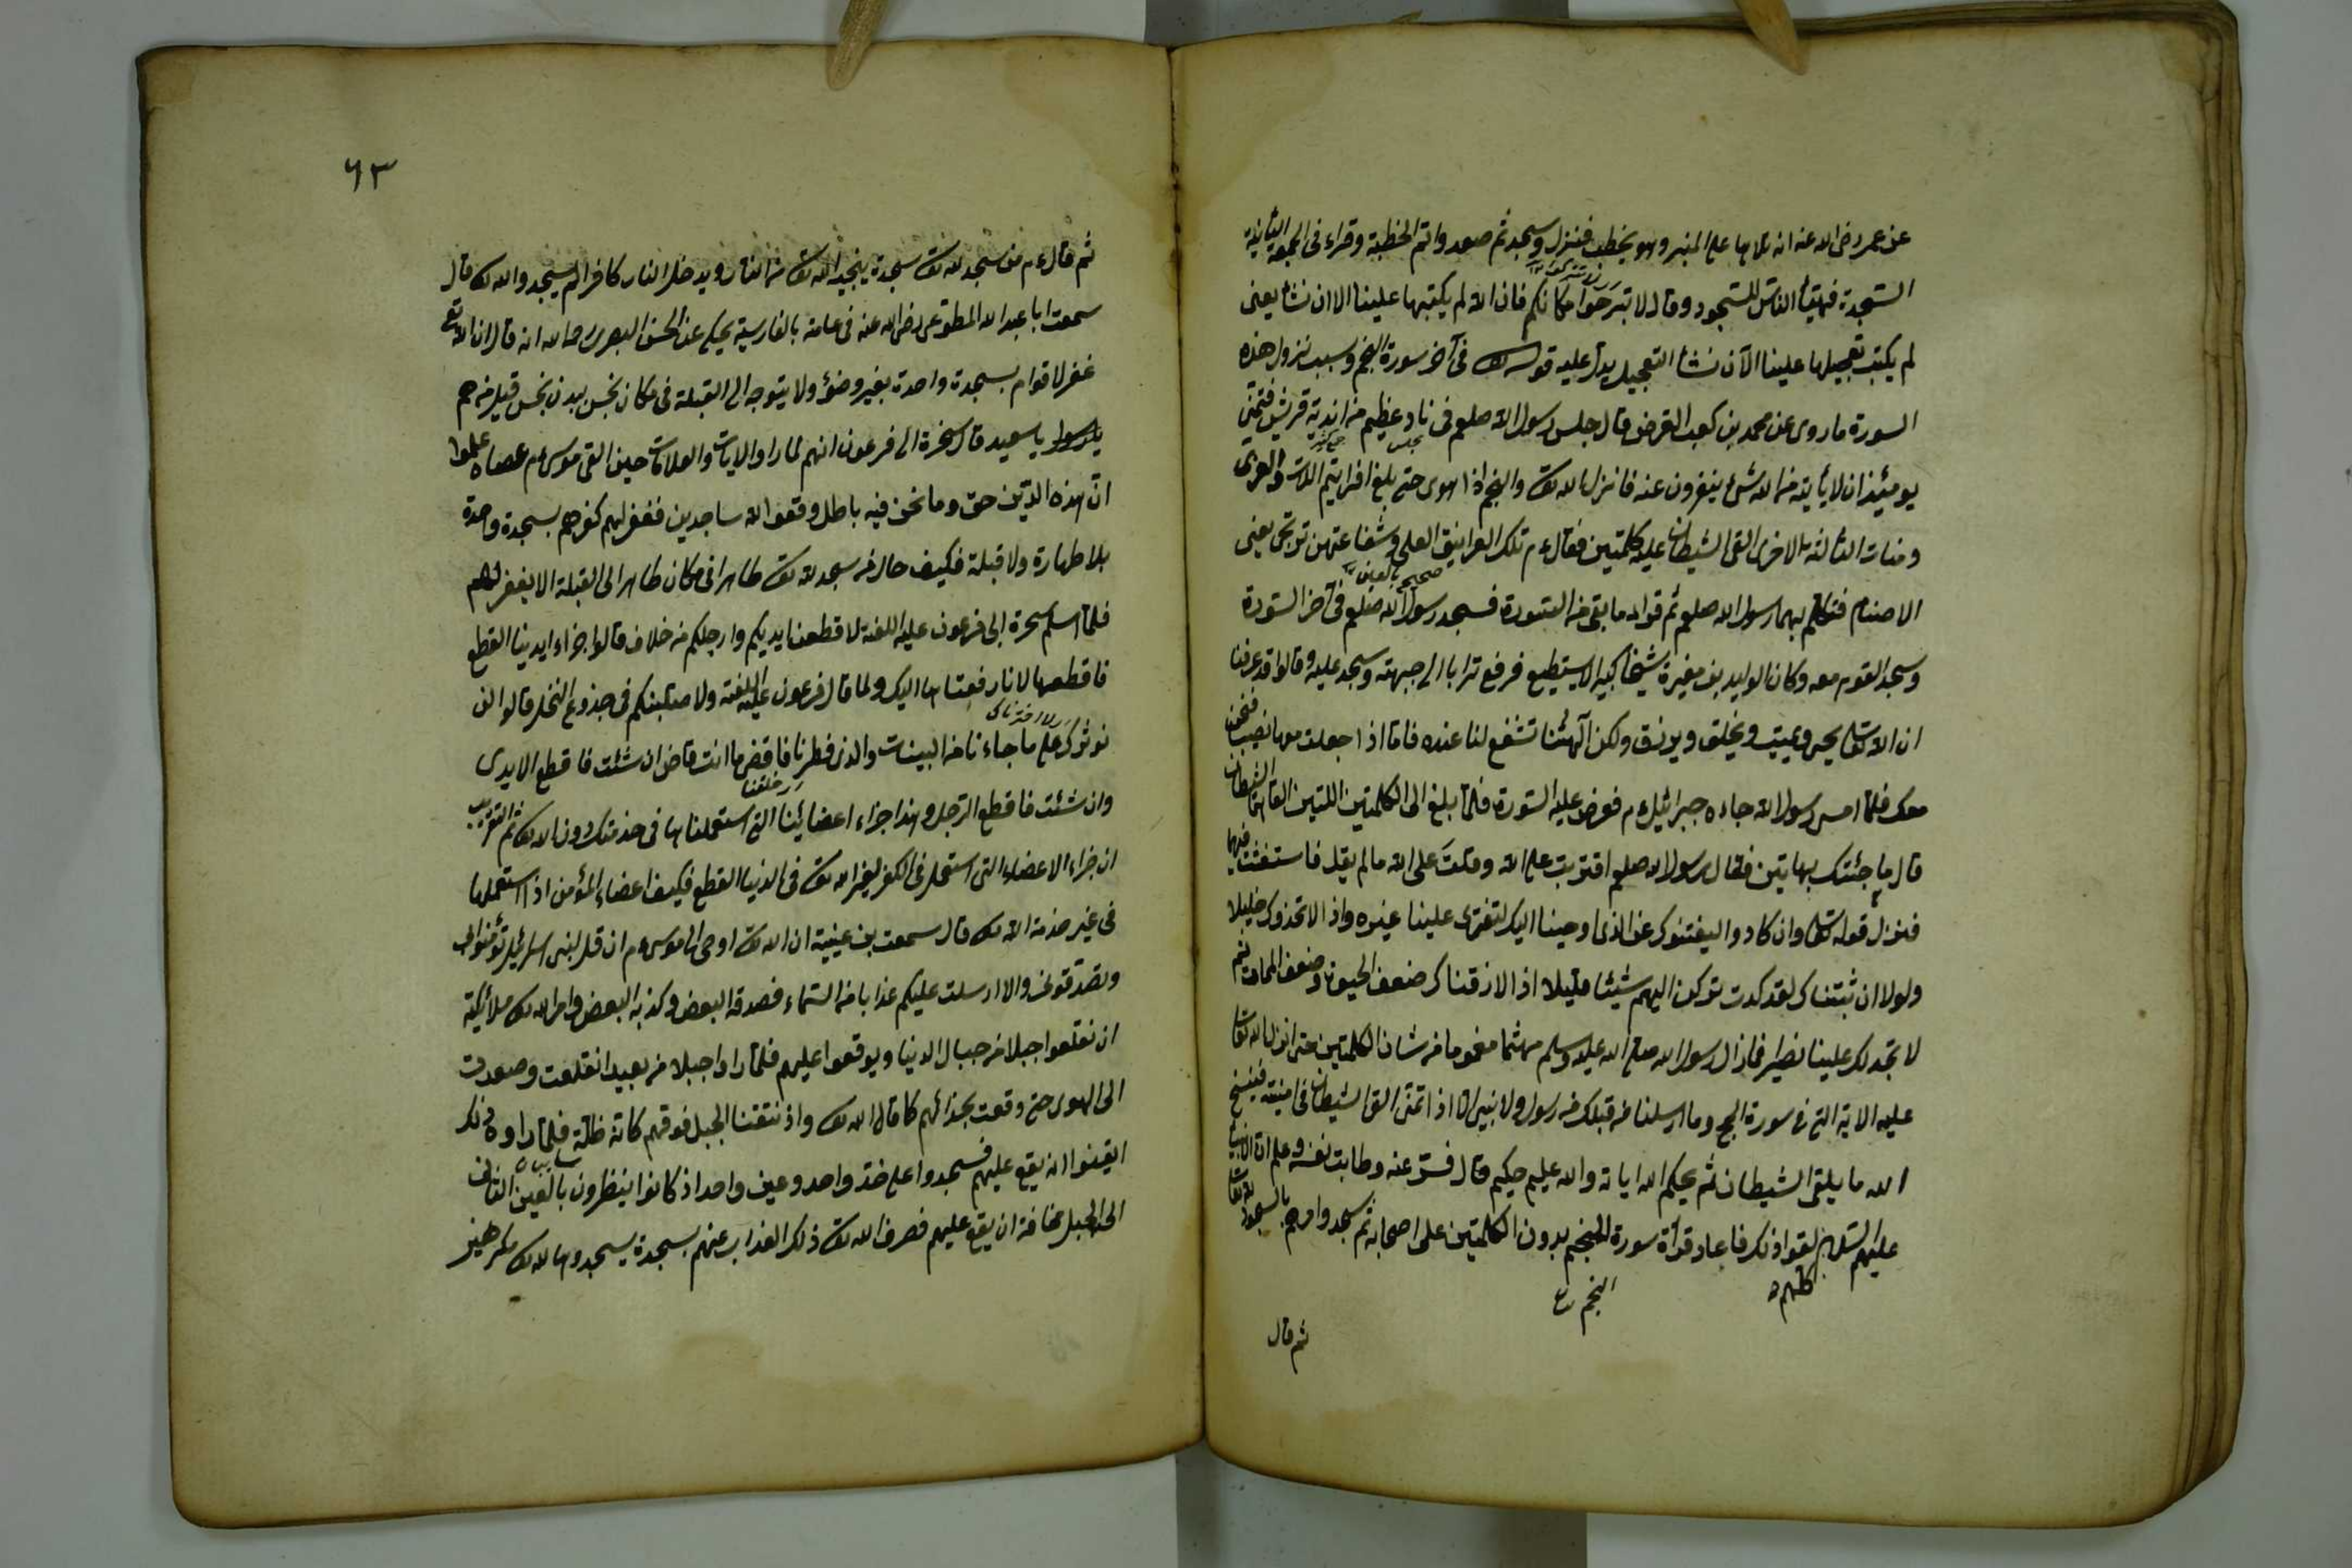 عن عمر رضى الله عنه انه تلاها على المنبر وهو يخطب فنزل وسجد ثم صعد واتم الخطبة وقراء فى الجمعة الثانية
السجدة فتهيّأ الناس للسجود وقال لا تبرحوا مكانكم فان الله لم يكتبها علينا الا ان نشأ يعنى
لم يكتب تعجيلها علينا الآن نشأ التعجيل يدل عليه قوله فى آخر سورة النجم وسبب نزول هذه
السورة ما روى عن محمد بن كعب القرضى قال جلس رسول الله صلعم فى ناد عظيم من اندية قريش فتمنى
مجلس
يومئذ ان لا يأتيه من الله شئ ينفرون عنه فانزل الله تعالى والنجم اذا هوى حتى بلغ افرايتم اللات والعزى
ومنات الثالثة الاخرى القى الشيطان عليه كلمتين فقال ء م تلك الغرانيق العلى وشفاعتهن ترتجى يعنى
الاصنام فتكلم بهما رسول الله صلعم ثم قراء ما بقى من السورة فسجد رسول الله صلعم فى آخر السورة
وسجد القوم معه وكان الوليد بن مغيرة شيخا كبيرا لا يستطيع فرفع ترابا الى جبهته وسجد عليه وقالوا قد عرفنا
ان الله تعالى يحيى ويميت ويخلق ويرزق ولكن آلهتنا تشفع لنا عنده فاما اذا جعلت معها نصيب فنحن
معك فلما امسى رسول الله جاءه جبرائيل ء م فعرض عليه السورة فلما بلغ الى الكلمتين اللتين القاهما الشيطان
قال ما جئتك بهاتين فقال رسول الله صلعم افتريت على الله وقلت على الله ما لم يقل
فنزل قوله تعالى وان كادوا ليفتنوك عن الذى اوحينا اليك لتفترى علينا غيره واذا لاتخذوك خليلا
ولولا ان ثبتناك لقد كدت تركن اليهم شيئا قليلا اذا لاذقناك ضعف الحيوة وضعف الممات ثم
لا تجد لك علينا نصيرا فما زال رسول الله صلى الله عليه وسلم مهتما مغموما من شان الكلمتين حتى انزل الله تعالى
عليه الاية التى فى سورة الحج وما ارسلنا من قبلك من رسول ولا نبى الا اذا تمنى القى الشيطان فى امنيته فينسخ
الله ما يلقى الشيطان ثم يحكم الله اياته والله عليم حكيم قال فسرّ عنه وطابت نفسه وعلم ان الانبياء
عليهم السلام لقوا ذلك فاعاد قرأة سورة النجم بدون الكلمتين على اصحابه ثم سجد وامرهم بالسجود لله تعالى
كلهم
النجم
ثم قال
٦٣
ثم قال ء م من سجد لله تعالى سجدة ينجيه الله تعالى من النار ويدخل النار كافرا لم يسجد والله قال
سمعت ابا عبد الله المطوعى رضى الله عنه فى عامة بالفارسية يحكى عن الحسن البصرى رحمه الله انه قال ان الله تع
غفر لاقوام بسجدة واحدة بغير وضؤ ولا يتوجه الى القبلة فى مكان نجس ببدن نجس قيل من هم
يا سعيد قال سحرة الى فرعون انهم لما راوا الايات والعلامات حين القى موسى ء م عصاه علموا
ان هذه الدين حق وما نحن فيه باطل وقعوا لله ساجدين فغفر لهم كفرهم بسجدة واحدة
بلا طهارة ولا قبلة فكيف حال من سجد لله تعالى طاهرا فى مكان طاهر الى القبلة الا يغفر لهم
فلما اسلم سحرة الى فرعون عليه اللعنة لاقطعن ايديكم وارجلكم من خلاف قالوا جزاء ايدينا القطع
فاقطعها لانا رفعناها اليك ولما قال فرعون عليه اللعنة ولاصلبنكم فى جذوع النخل قالوا لن
نوثرك على ما جاءنا من البينات والذى فطرنا فاقض ما انت قاض ان شئت فاقطع الايدى
خلقنا
وان شئت فاقطع الرجل وهذا جزاء اعضائنا التى استعملناها فى خدمتك دون الله
ان جزاء الاعضاء التى استعمل فى الكفر لغير الله تعالى فى الدنيا القطع فكيف اعضاء المؤمن اذا استعملها
فى غير خدمة الله قال سمعت بن عيينة ان الله تعالى اوحى الى موسى ء م ان قل لبنى اسرائيل تؤمنوا بى
وتصدقونى والا ارسلت عليكم عذابا من السماء فصدقه البعض وكذبه البعض وامر الله ملائكته
ان تقلعوا جبلا من جبال الدنيا ويوقعوا عليهم فلما راوا جبلا من بعيد انقلعت وصعدت
الى الهوى حتى وقعت بحذائهم كما قال الله واذ نتقنا الجبل فوقهم كانه ظلة فلما راوه ذلك
ايقنوا انه يقع عليهم فسجدوا على خد واحد وعين واحد اذ كانوا ينظرون بالعين الثانى
الى الجبل مخافة ان يقع عليهم فصرف الله تعالى ذلك العذاب عنهم بسجدة يسجدونها لله مكرهين